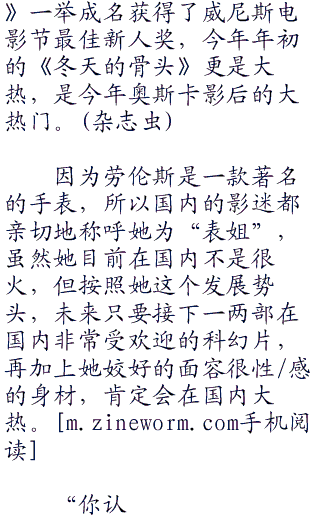 》一举成名获得了威尼斯电
影节最佳新人奖，今年年初
的《冬天的骨头》更是大
热，是今年奥斯卡影后的大
热门。(杂志虫)
因为劳伦斯是一款著名
的手表，所以国内的影迷都
亲切地称呼她为“表姐”，
虽然她目前在国内不是很
火，但按照她这个发展势
头，未来只要接下一两部在
国内非常受欢迎的科幻片，
再加上她姣好的面容很性/感
的身材，肯定会在国内大
热。[m.zineworm.com手机阅
读]
“你认